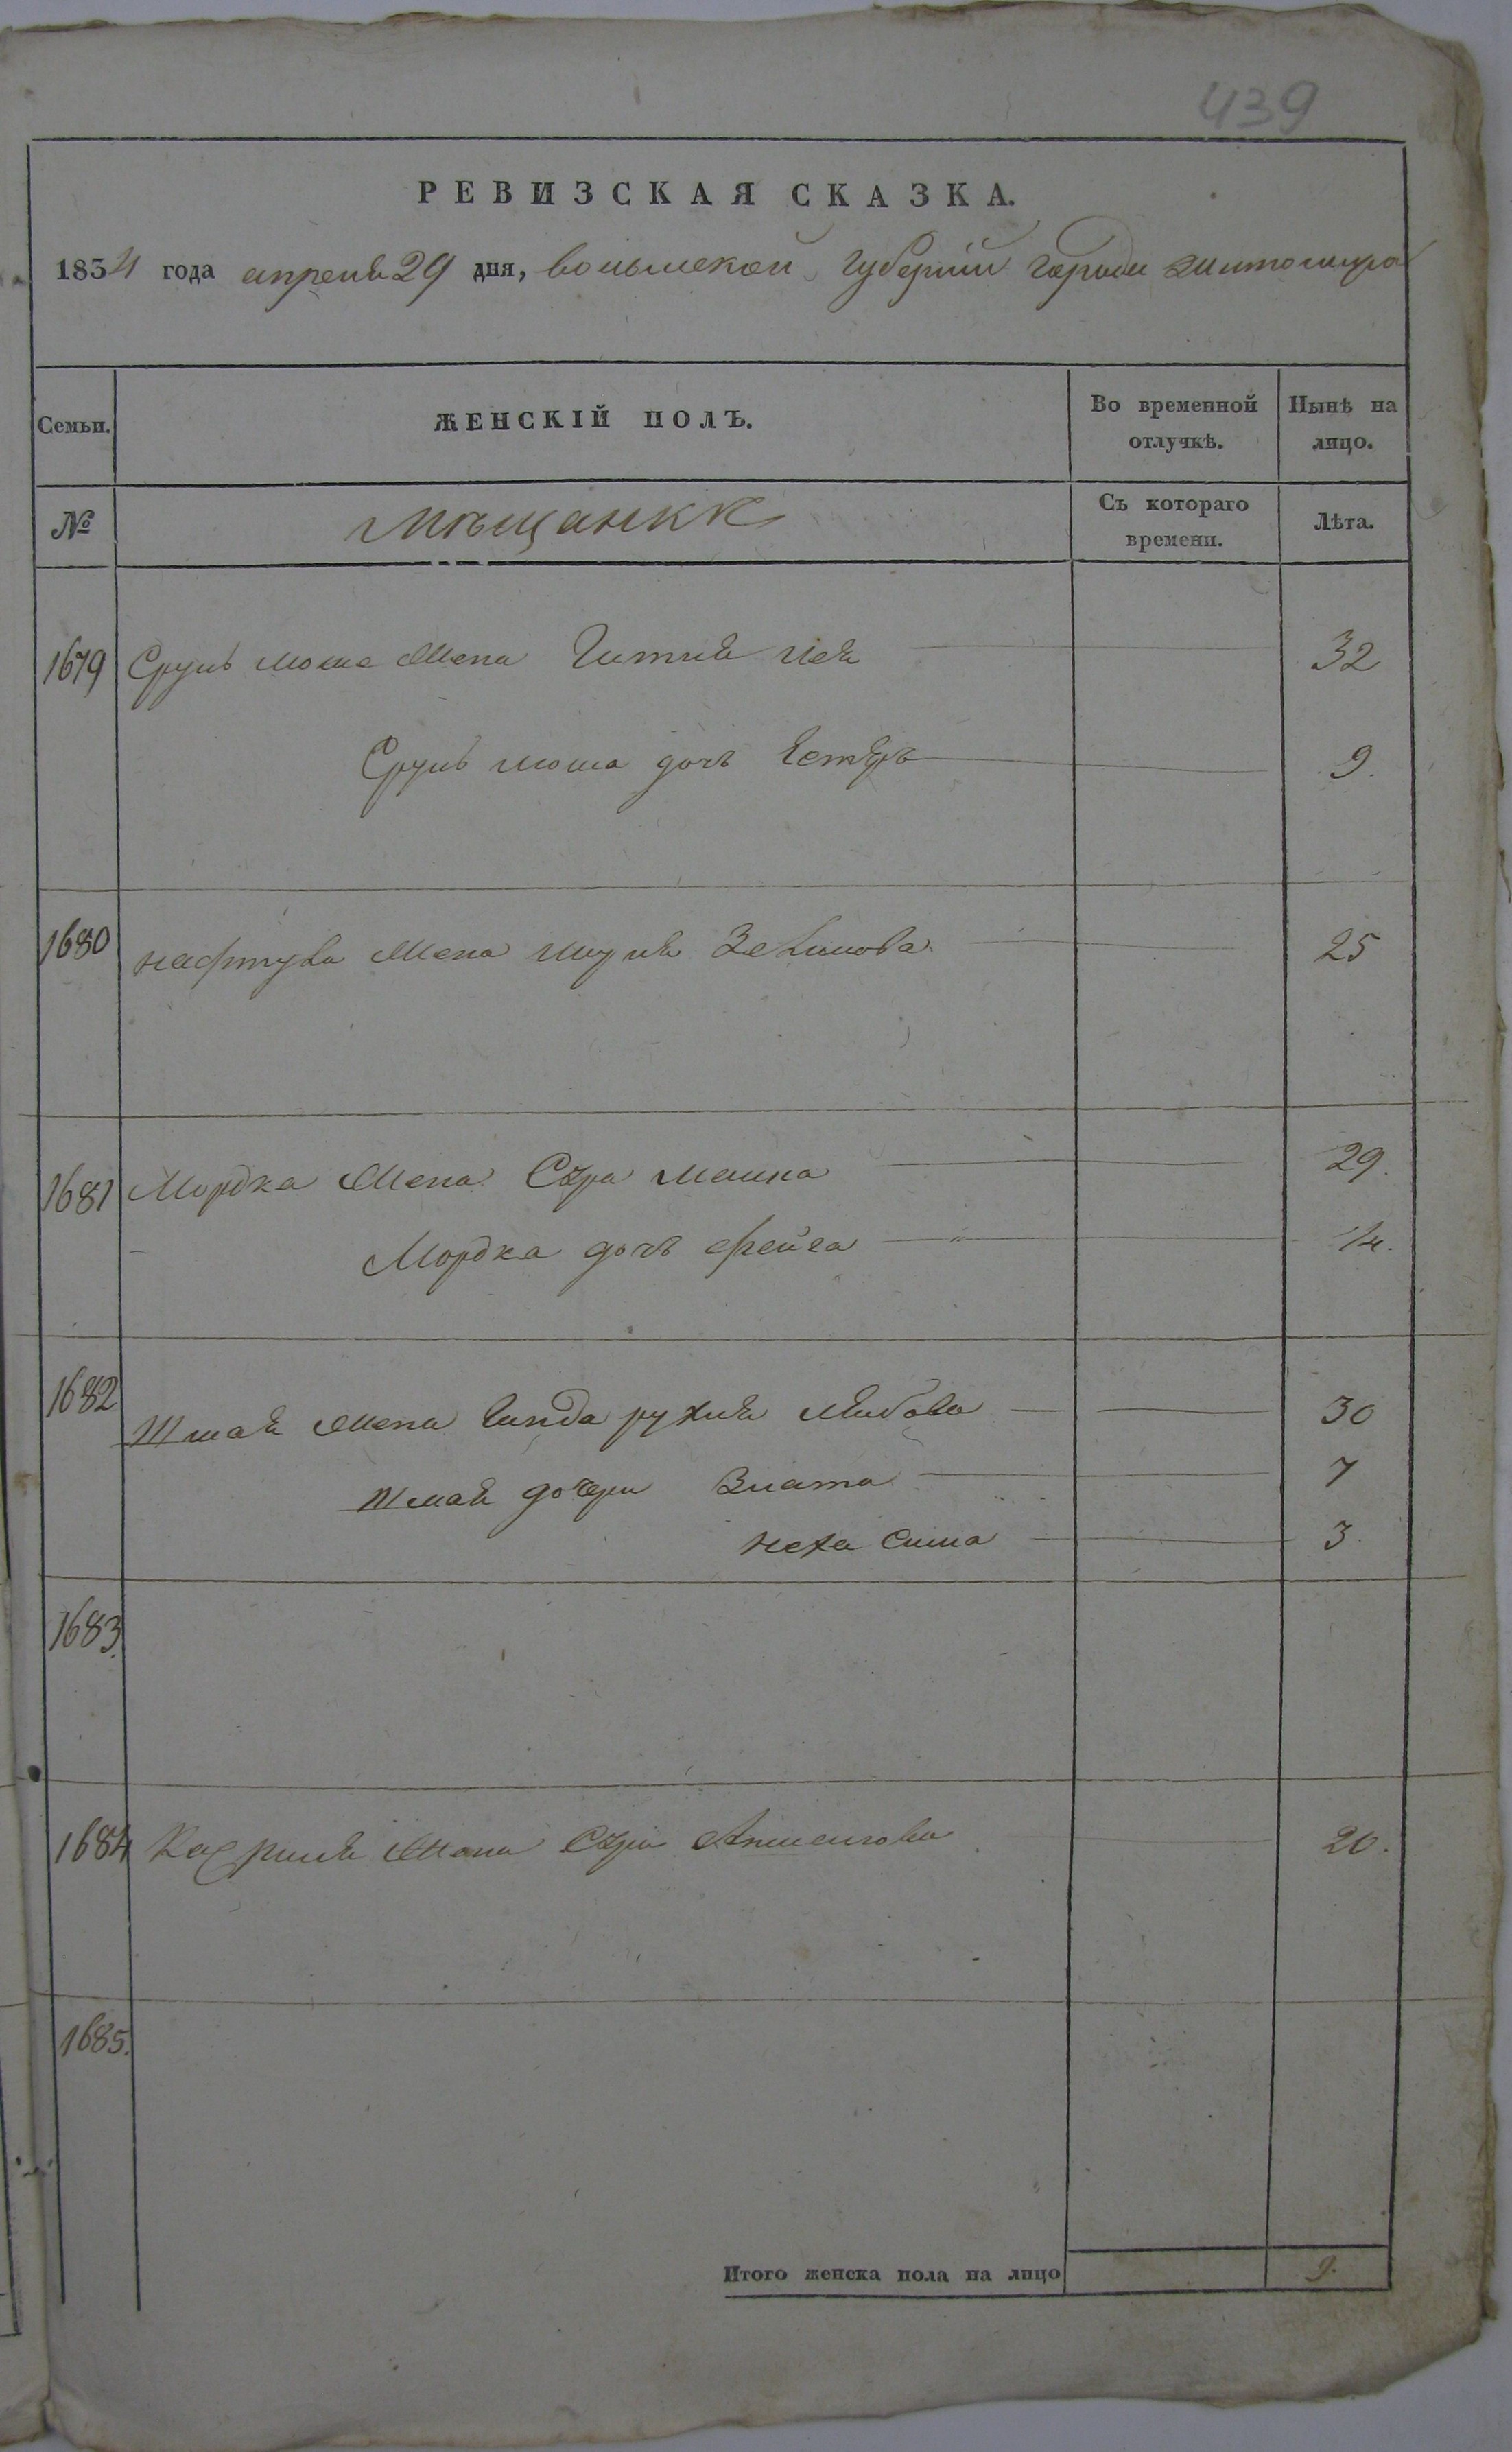 439
РЕВИЗСКАЯ СКАЗКА.
1834 года апреля 29 дня, волынской губернии города житомира
Семьи.
ЖЕНСКІЙ ПОЛЪ.
Во временной отлучкѣ.
Нынѣ на лицо.
№
мѣщанкк
Съ котораго времени.
Лѣта.
1679 Сруль моше жена Гитля лея 32
Сруль моша дочь Естеръ 9.
1680 нафтула жена 25
1681 Мордка жена Сура малка 29.
Мордка дочь фейга 14.
1682 Шмая жена Гинда рухля лейбова 30
Шмая дочери Злата 7
неха сима 3.
1683.
1684 жена Сура 20.
1685.
Итого женска пола на лицо 9.